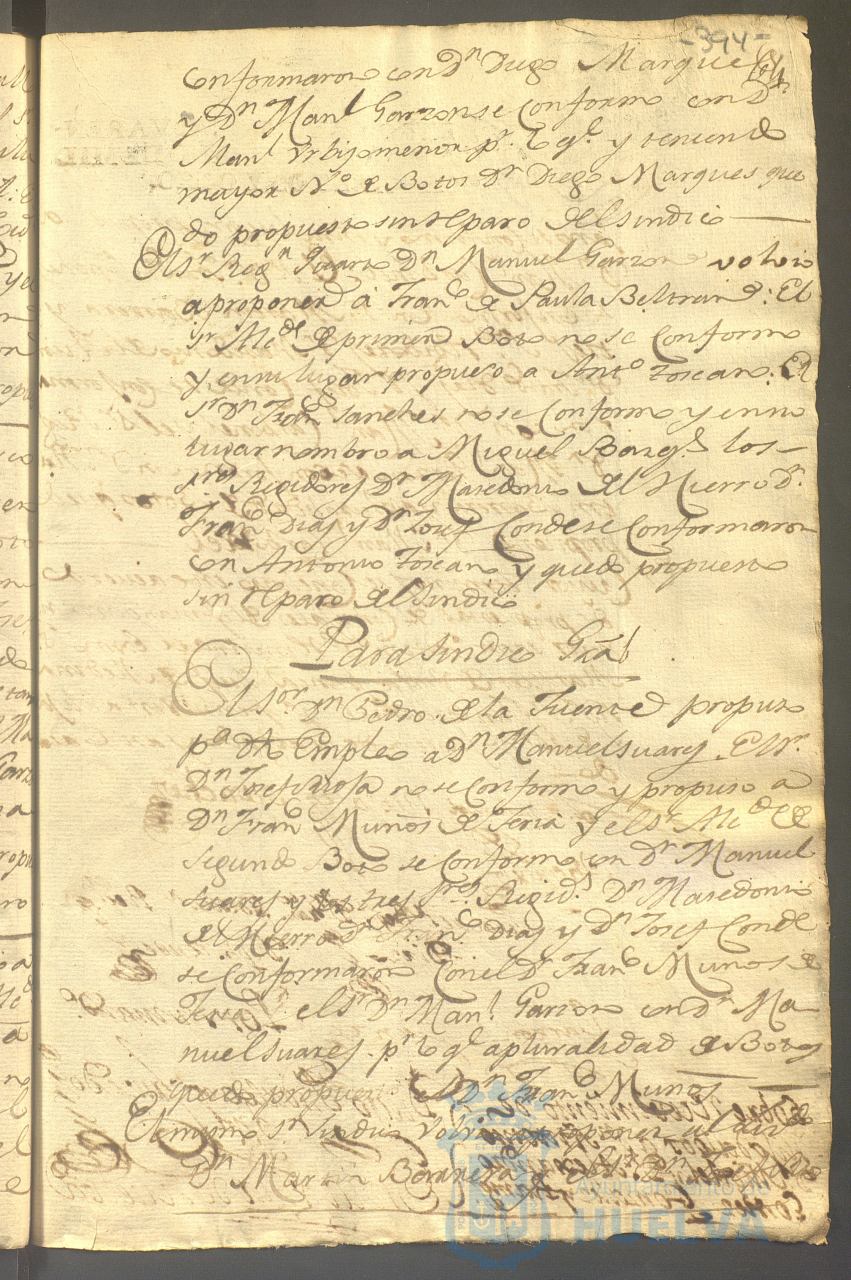 -394-
conformaron con Dn Diego Marques
y Dn Manl Garzon se conformo con Dn
Manl Vrbijo menor pr. lo ql. y teniendo
mayor No. de Botos Dn Diego Marques que
do propuesto sin reparo del sindico
El sr. Regn. quarto Dn Manuel Garzon volvio
a proponer á Franco de Paula Beltran. El
sr Alcde de primer Boto no se conformo
y en su lugar propuso a Anto Toscano. El
sr Dn Franco sanches no se conformo y en su
lugar nombro a Miguel los
sres Regidores Dn Masedonio del Hierro Dn
Franco Dias y Dn Josef Conde se conformaron
con Antonio Toscano y quedo propuesto
sin reparo del sindico
Para sindico Gral
El sor. Dn Pedro de la Fuente propuso
pa dho Empleo a Dn Manuel suares. El sr.
Dn Josef Rioja no se conformo y propuso a
Dn Franco Muños de Feria y el sr Alcde de
segundo Boto se conformo con Dn Manuel
suares y los tres sres. Regids. Dn Masedonio
del Hierro Dn Franco Dias y Dn Josef Conde
se conformaron con el Dn Franco Muños de
Feria el sr Dn Manl. Garzon con Dn Ma
nuel suares. pr lo ql a pluralidad de Botos
quedo propuesto el Dn Franco Muños
El mismo sr sindico volvio a proponer
Dn Martin
Ayuntamiento de
HUELVA